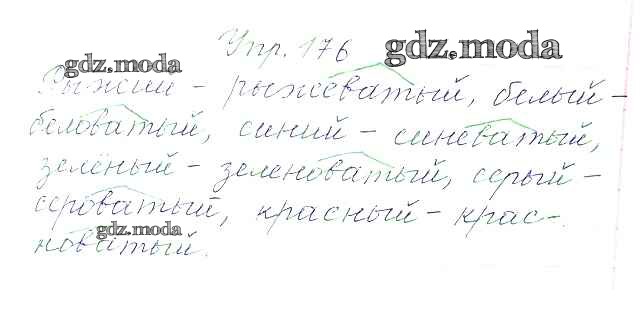 Упр. 176 gdz.moda
gdz.moda
Рыжий - рыжеватый, белый -
беловатый, синий - синеватый,
зелёный - зеленоватый, серый -
сероватый, красный - крас-
gdz.moda
новатый.